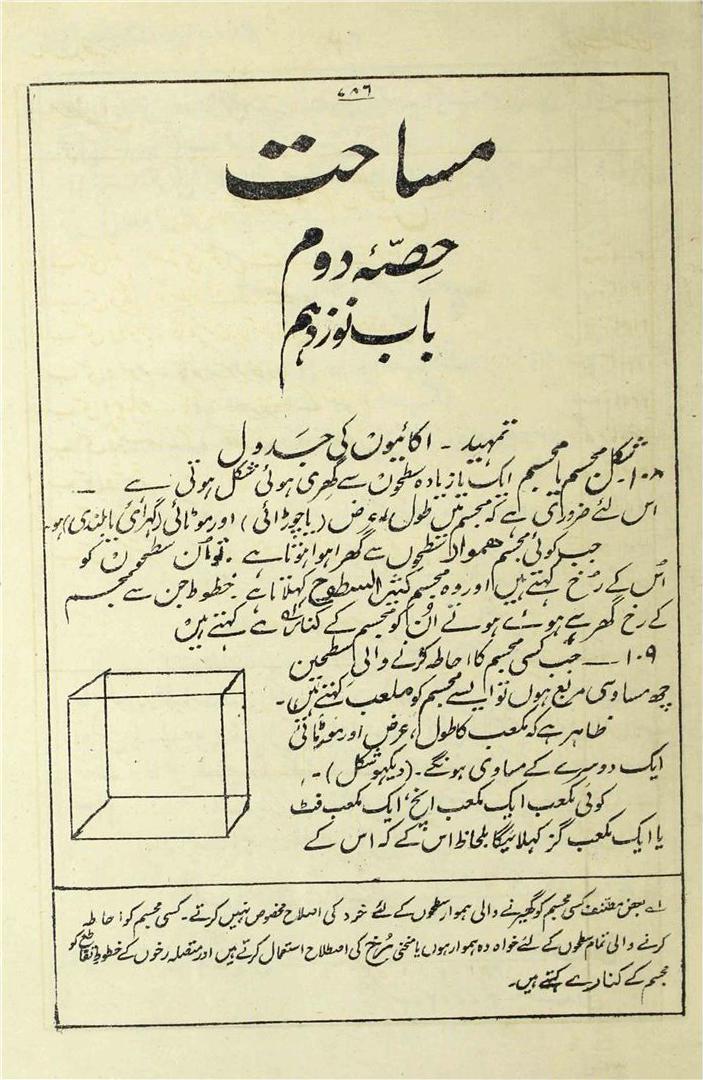 ۷۸۶
مساحت
حصّۂ دوم
باب نوزدہم
تمہید ۔ اکائیوں کی جدول
۱۰۸۔ شکل مجسم یا مجسم ایک یا زیادہ سطحوں سے گھری ہوئی شکل ہوتی ہے ۔
اس لئے ضروری ہے کہ مجسم میں طول، عرض (یا چوڑائی) اور موٹائی (گہرائی یا بلندی) ہو۔
جب کوئی مجسم ھموار سطحوں سے گھرا ہوا ہوتا ہے ۔ تو اُن سطحوں کو
اُس کے رُخ کہتے ہیں اور وہ مجسم کثیر السطوح کہلاتا ہے خطوط جن سے مجسم
کے رخ گھرے ہوئے ہوتے اُن کو مجسم کے کنارے کہتے ہیں
۱۰۹ ۔ جب کسی مجسم کا احاطہ کرنے والی سطحیں
چھ مساوی مربع ہوں تو ایسے مجسم کو مکعب کہتے ہیں۔
ظاہر ہے کہ مکعب کا طول، عرض اور موٹائی
ایک دوسرے کے مساوی ہونگے۔ (دیکھو شکل)۔
کوئی مکعب ایک مکعب انچ، ایک مکعب فٹ
یا ایک مکعب گز کہلائیگا بلحاظ اس کے کہ اس کے
لے بعض مصنف کسی مجسم کو گھیرنے والی ہموار سطحوں کے لئے خرد کی اصلاح مخصوص نہیں کرتے۔ کسی مجسم کو احاطہ
کرنے والی تمام سطحوں کے لئے خواہ وہ ہموار ہوں یا منحنی رُخ کی اصطلاح استعمال کرتے ہیں اور متصلہ رخوں کے خطوط تقاطع کو
مجسم کے کنارے کہتے ہیں۔